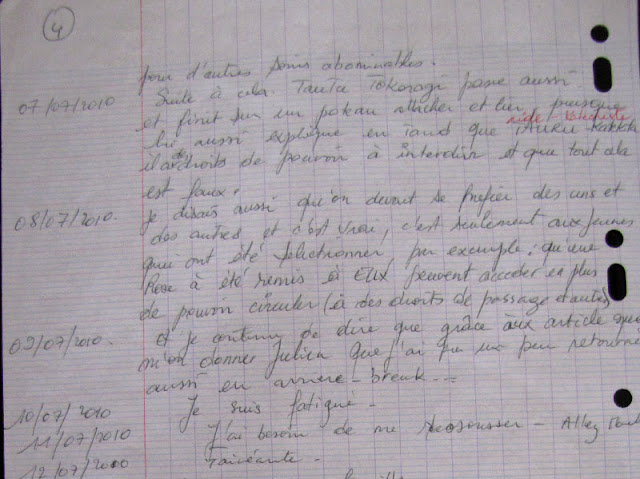 4
pour d'autres soins abominables.
07/07/2010 Suite à cela Tauta Tokoragi passe aussi
et finit sur un poteau attacher et lier, puisque
lui aussi explique en tand que
il a droits de pouvoir à interdir et que tout cela
est faux.
08/07/2010. Je disais aussi qu'on devait se méfier des uns et
des autres et c'est vrai, c'est seulement aux jeunes
qui ont été sélectionner par exemple : qu'une
Rose à été remis à EUX peuvent acceder en plus
de pouvoir circuler (à des droits de passage et autre)
09/07/2010. et je continu de dire que grâce àux article que
m'on donner Julien que j'ai pu un peu retourne
aussi en arriere-break...
10/07/2010 Je suis fatigué.
11/07/2010 J'ai besoin de me - Allez
12/07/2010